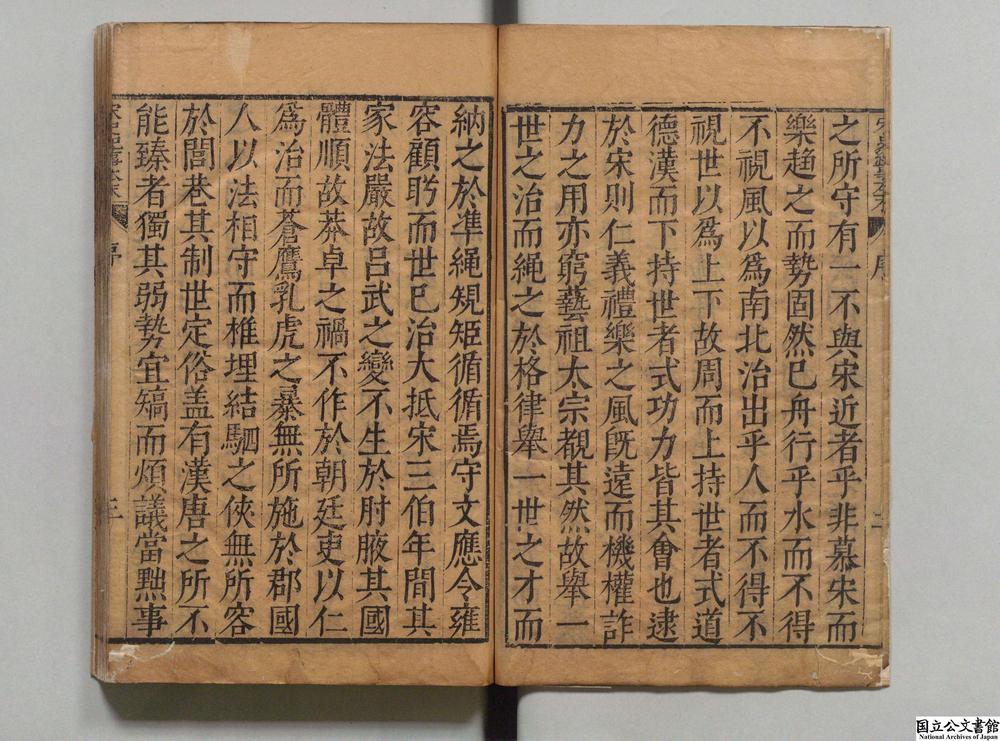 之所守有一不與宋近者乎非慕宋而
樂趨之而勢固然已舟行乎水而不得
不視風以爲南北治出乎人而不得不
視世以爲上下故周而上持世者式道
德漢而下持世者式功力皆其會也逮
於宋則仁義禮樂之風旣遠而機權詐
力之用亦窮藝祖太宗覩其然故舉一
世之治而繩之於格律舉一世之才而
納之於準繩規矩循循焉守文應令雍
容顧盻而世已治大抵宋三伯年間其
家法嚴故呂武之變不生於肘腋其國
體順故莽卓之禍不作於朝廷吏以仁
爲治而蒼鷹乳虎之暴無所施於郡國
人以法相守而椎埋結駟之俠無所容
於閭巷其制世定俗盖有漢唐之所不
能臻者獨其弱勢宜矯而煩議當黜事
序
二
序
三
国立公文書館
National Archives of Japan